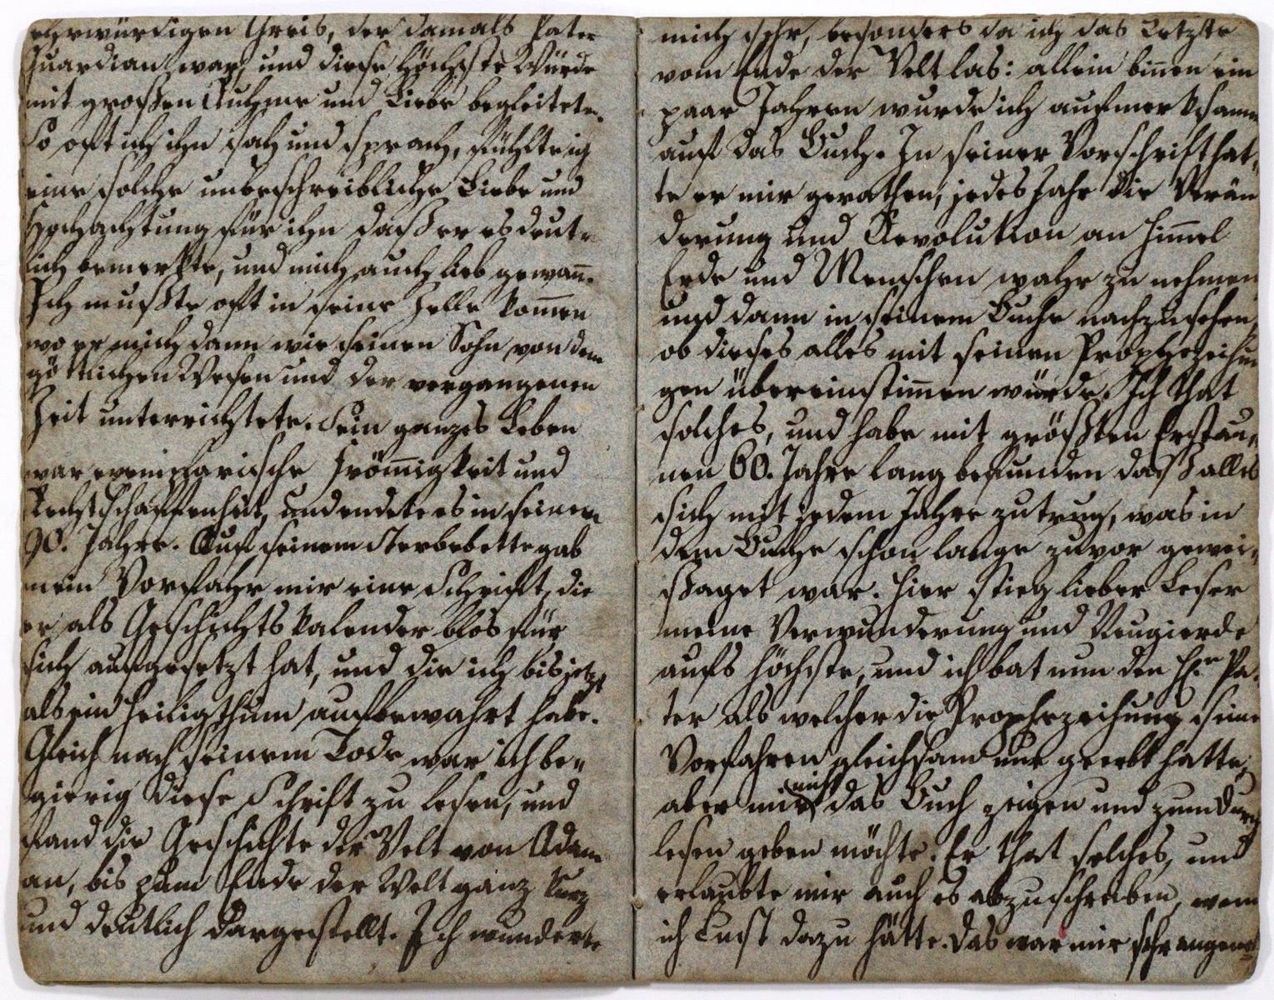 ehrwürdigen Greis, der damals Pater
Guardian war, und diese höchste Würde
mit großen Ruhme und Liebe begleitete.
So oft ich ihn sah und sprach, fühlte ich
eine solche unbeschreibliche Liebe und
Hochachtung für ihn daß er es deut-
lich bemerkte, und mich auch lieb gewan̄.
Ich mußte oft in seine Zelle kom̄en
wo er mich dann wie seinen Sohn von dem
göttlichen Wesen und der vergangenen
Zeit unterrichtete. Sein ganzes Leben
war exemplarische Fröm̄igkeit und
Rechtschaffenheit, und endete es in seinem
90. Jahre. Auf seinem Sterbebette gab
mein Vorfahr mir eine Schrift, die
er als Geschichtskalender blos für
sich aufgesetzt hat, und die ich bis jetzt
als ein Heiligthum aufbewahrt habe.
Gleich nach seinem Tode war ich be-
gierig diese Schrift zu lesen, und
fand die Geschichte der Welt von Adam
an, bis zum Ende der Welt ganz kurz
und deutlich dargestellt. Ich wunderte
mich sehr, besonders da ich das Letzte
vom Ende der Welt las: allein bin̄en ein
paar Jahren wurde ich aufmerksam
auf das Buch. In seiner Vorschrift hat-
te er mir gerathen, jedes Jahr die Verän
derung und Revolution an Him̄el
Erde und Menschen wahr zu nehmen
und dann in seinem Buche nachzusehen,
ob dieses alles mit seinen Prophezeihun
gen übereinstim̄en würde. Ich that
solches, und habe mit größten Erstau-
nen 60. Jahre lang befunden daß alles
sich mit jedem Jahre zutrug, was in
dem Buche schon lange zuvor gewei-
ßaget war. Hier stieg lieber Leser
meine Verwunderung und Neugierde
aufs höchste, und ich bat nun den Hr. Pa-
ter als welcher die Prophezeihung seiner
Vorfahren gleichsam nur geerbt hatte,
aber mir auch das Buch zeigen und zum durch
lesen geben möchte. Er that solches, und
erlaubte mir auch es abzuschreiben, wenn
ich Lust dazu hätte. Das war mir sehr angeneh